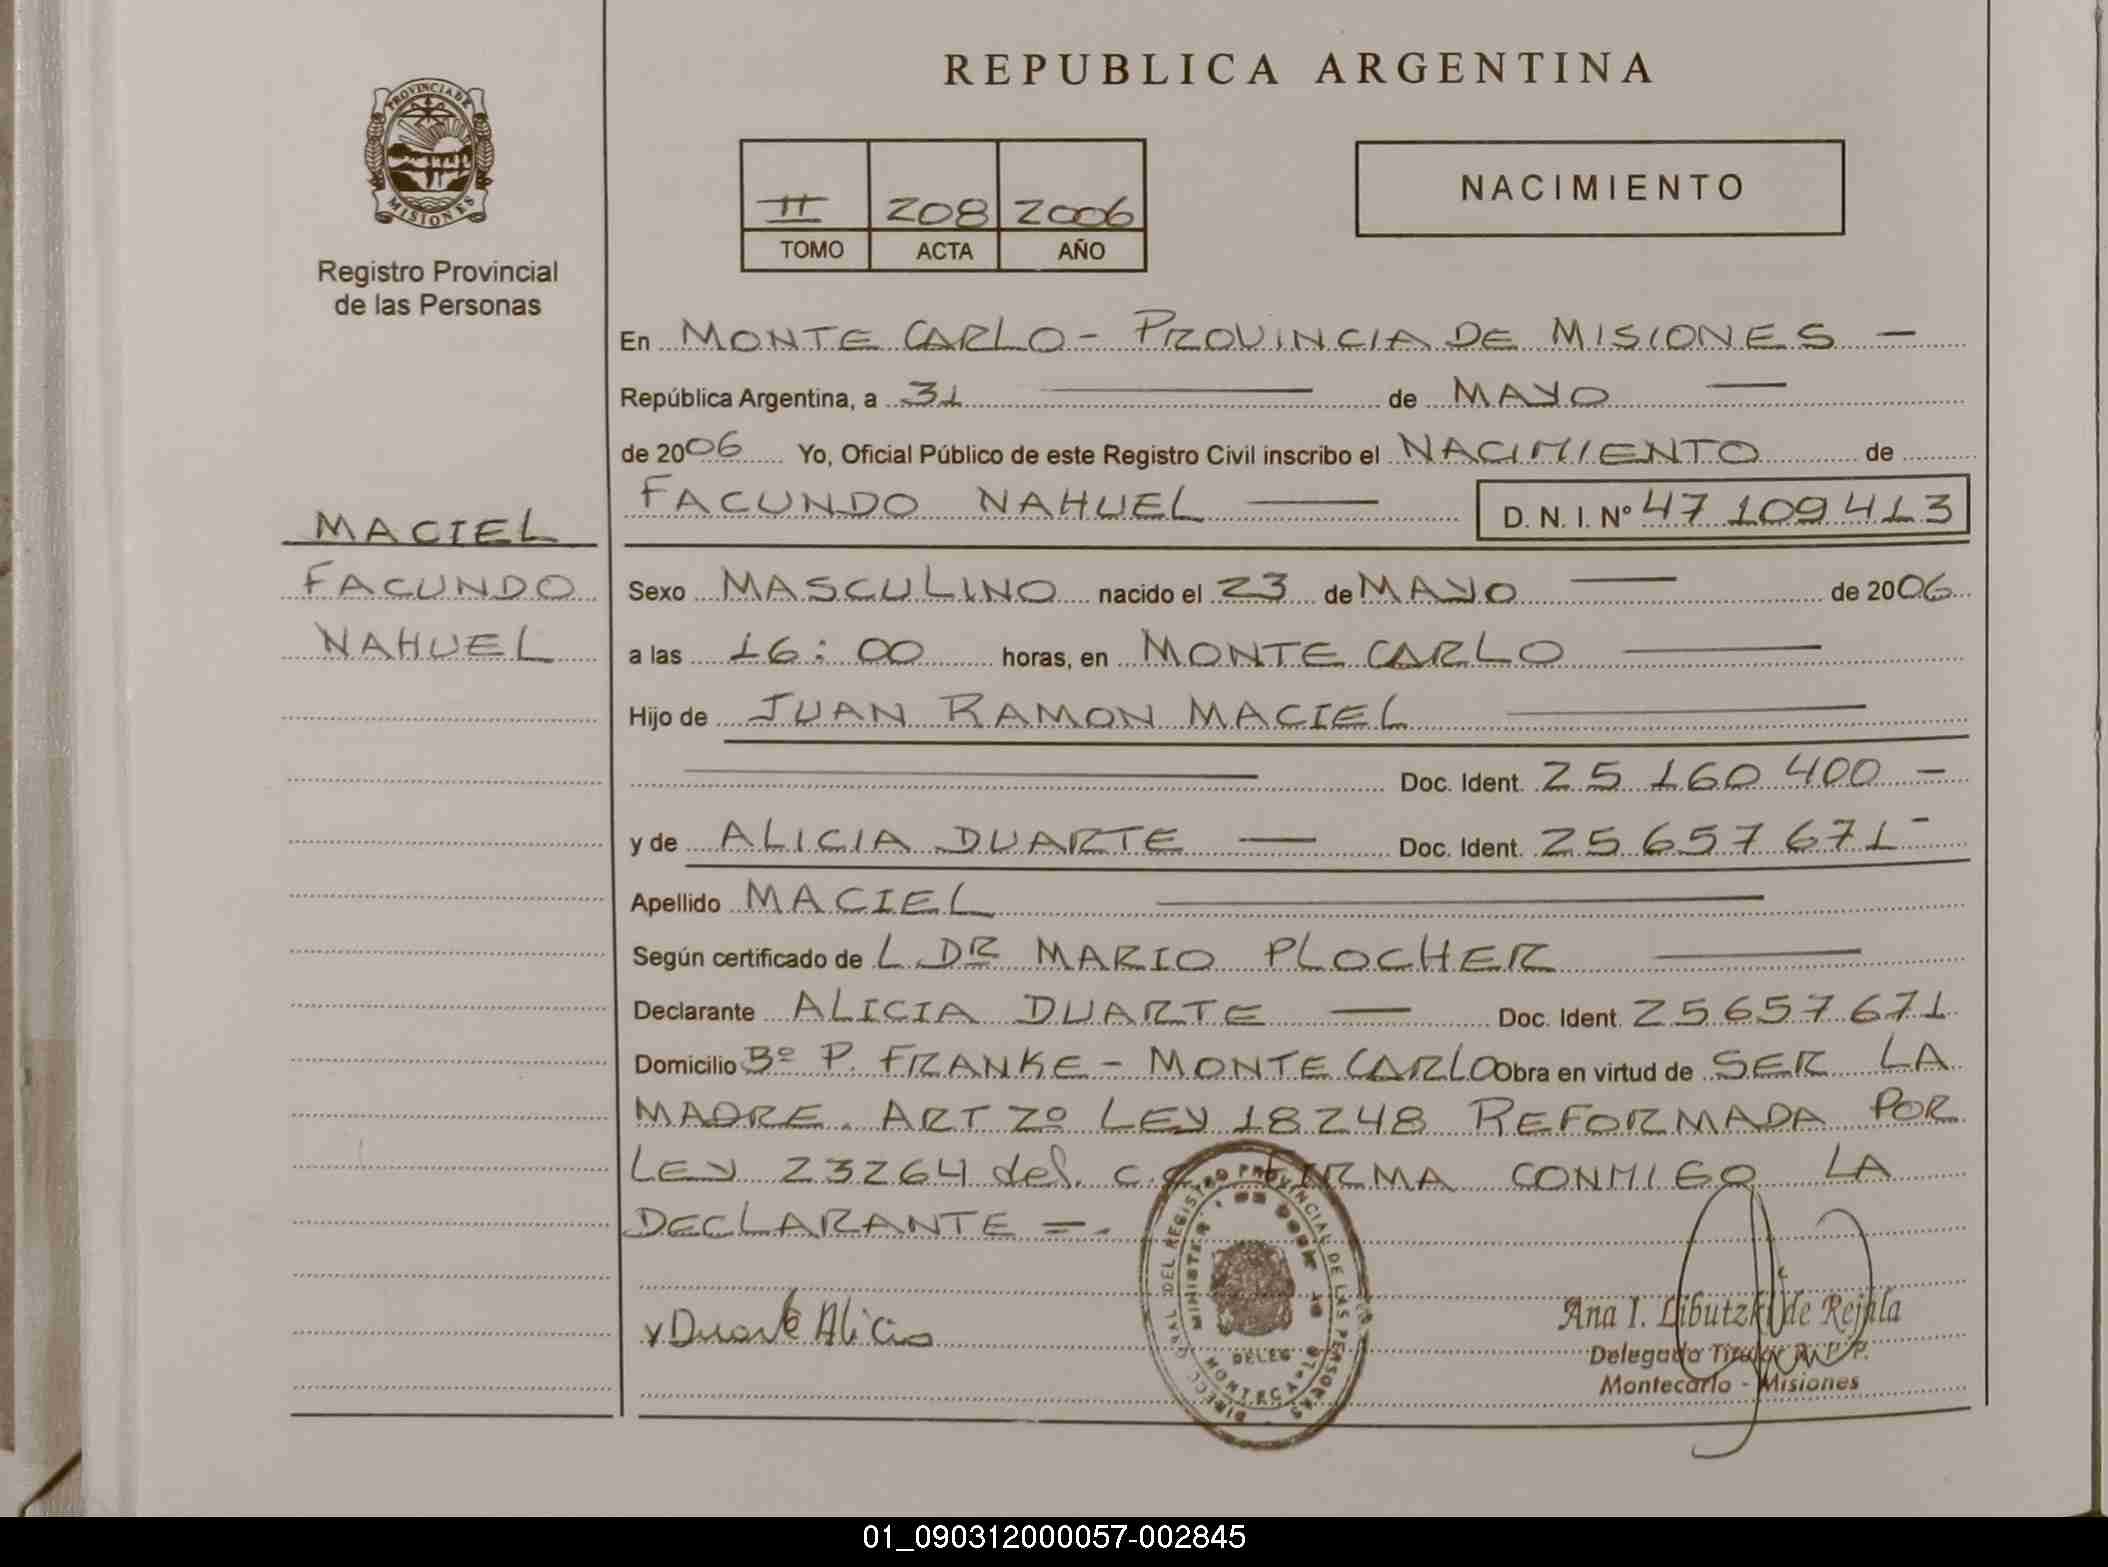 REPUBLICA ARGENTINA
PROVINCIA DE
MISIONES
Registro Provincial
de las Personas
II 208 2006
TOMO ACTA AÑO
NACIMIENTO
En MONTE CARLO - PROVINCIA DE MISIONES —
República Argentina, a 31 — de MAYO —
de 2006 Yo, Oficial Público de este Registro Civil inscribo el NACIMIENTO de
FACUNDO NAHUEL — D. N. I. Nº 47 109 413
MACIEL
FACUNDO
NAHUEL
Sexo MASCULINO nacido el 23 de MAYO — de 2006
a las 16:00 horas, en MONTE CARLO —
Hijo de JUAN RAMON MACIEL —
— Doc. Ident. 25 160 400 —
y de ALICIA DUARTE — Doc. Ident. 25 657 671 -
Apellido MACIEL —
Según certificado de L DR MARIO PLOCHER —
Declarante ALICIA DUARTE — Doc. Ident. 25657671
Domicilio Bº P. FRANKE - MONTE CARLO Obra en virtud de SER LA
MADRE. ART 2º LEY 18248 REFORMADA POR
LEY 23264 del. C.C FIRMA CONMIGO LA
DECLARANTE =-.
x Duarte Alicia
DELEG
Ana I. Libutzki de Rejala
Delegado Titular R. P. P.
Montecarlo - Misiones
01_090312000057-002845